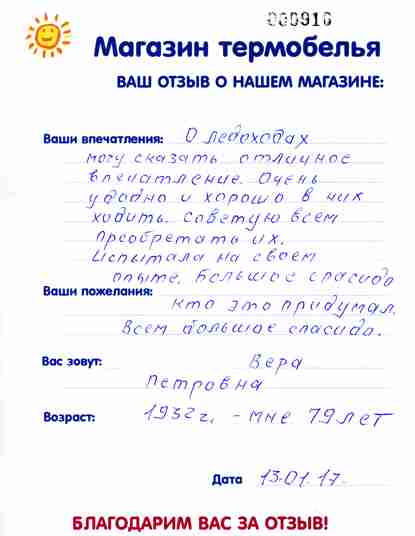 000916
Магазин термобелья
ВАШ ОТЗЫВ О НАШЕМ МАГАЗИНЕ:
Ваши впечатления: О ледоходах
могу сказать отличное
впечатление. Очень
удобно и хорошо в них
ходить. Советую всем
преобретать их.
Испытала на своем
опыте. Большое спасибо
Ваши пожелания:
кто это придумал.
Всем большое спасибо.
Вас зовут: Вера
Петровна
Возраст: 1932г. - мне 79 лет
Дата 13.01.17.
БЛАГОДАРИМ ВАС ЗА ОТЗЫВ!